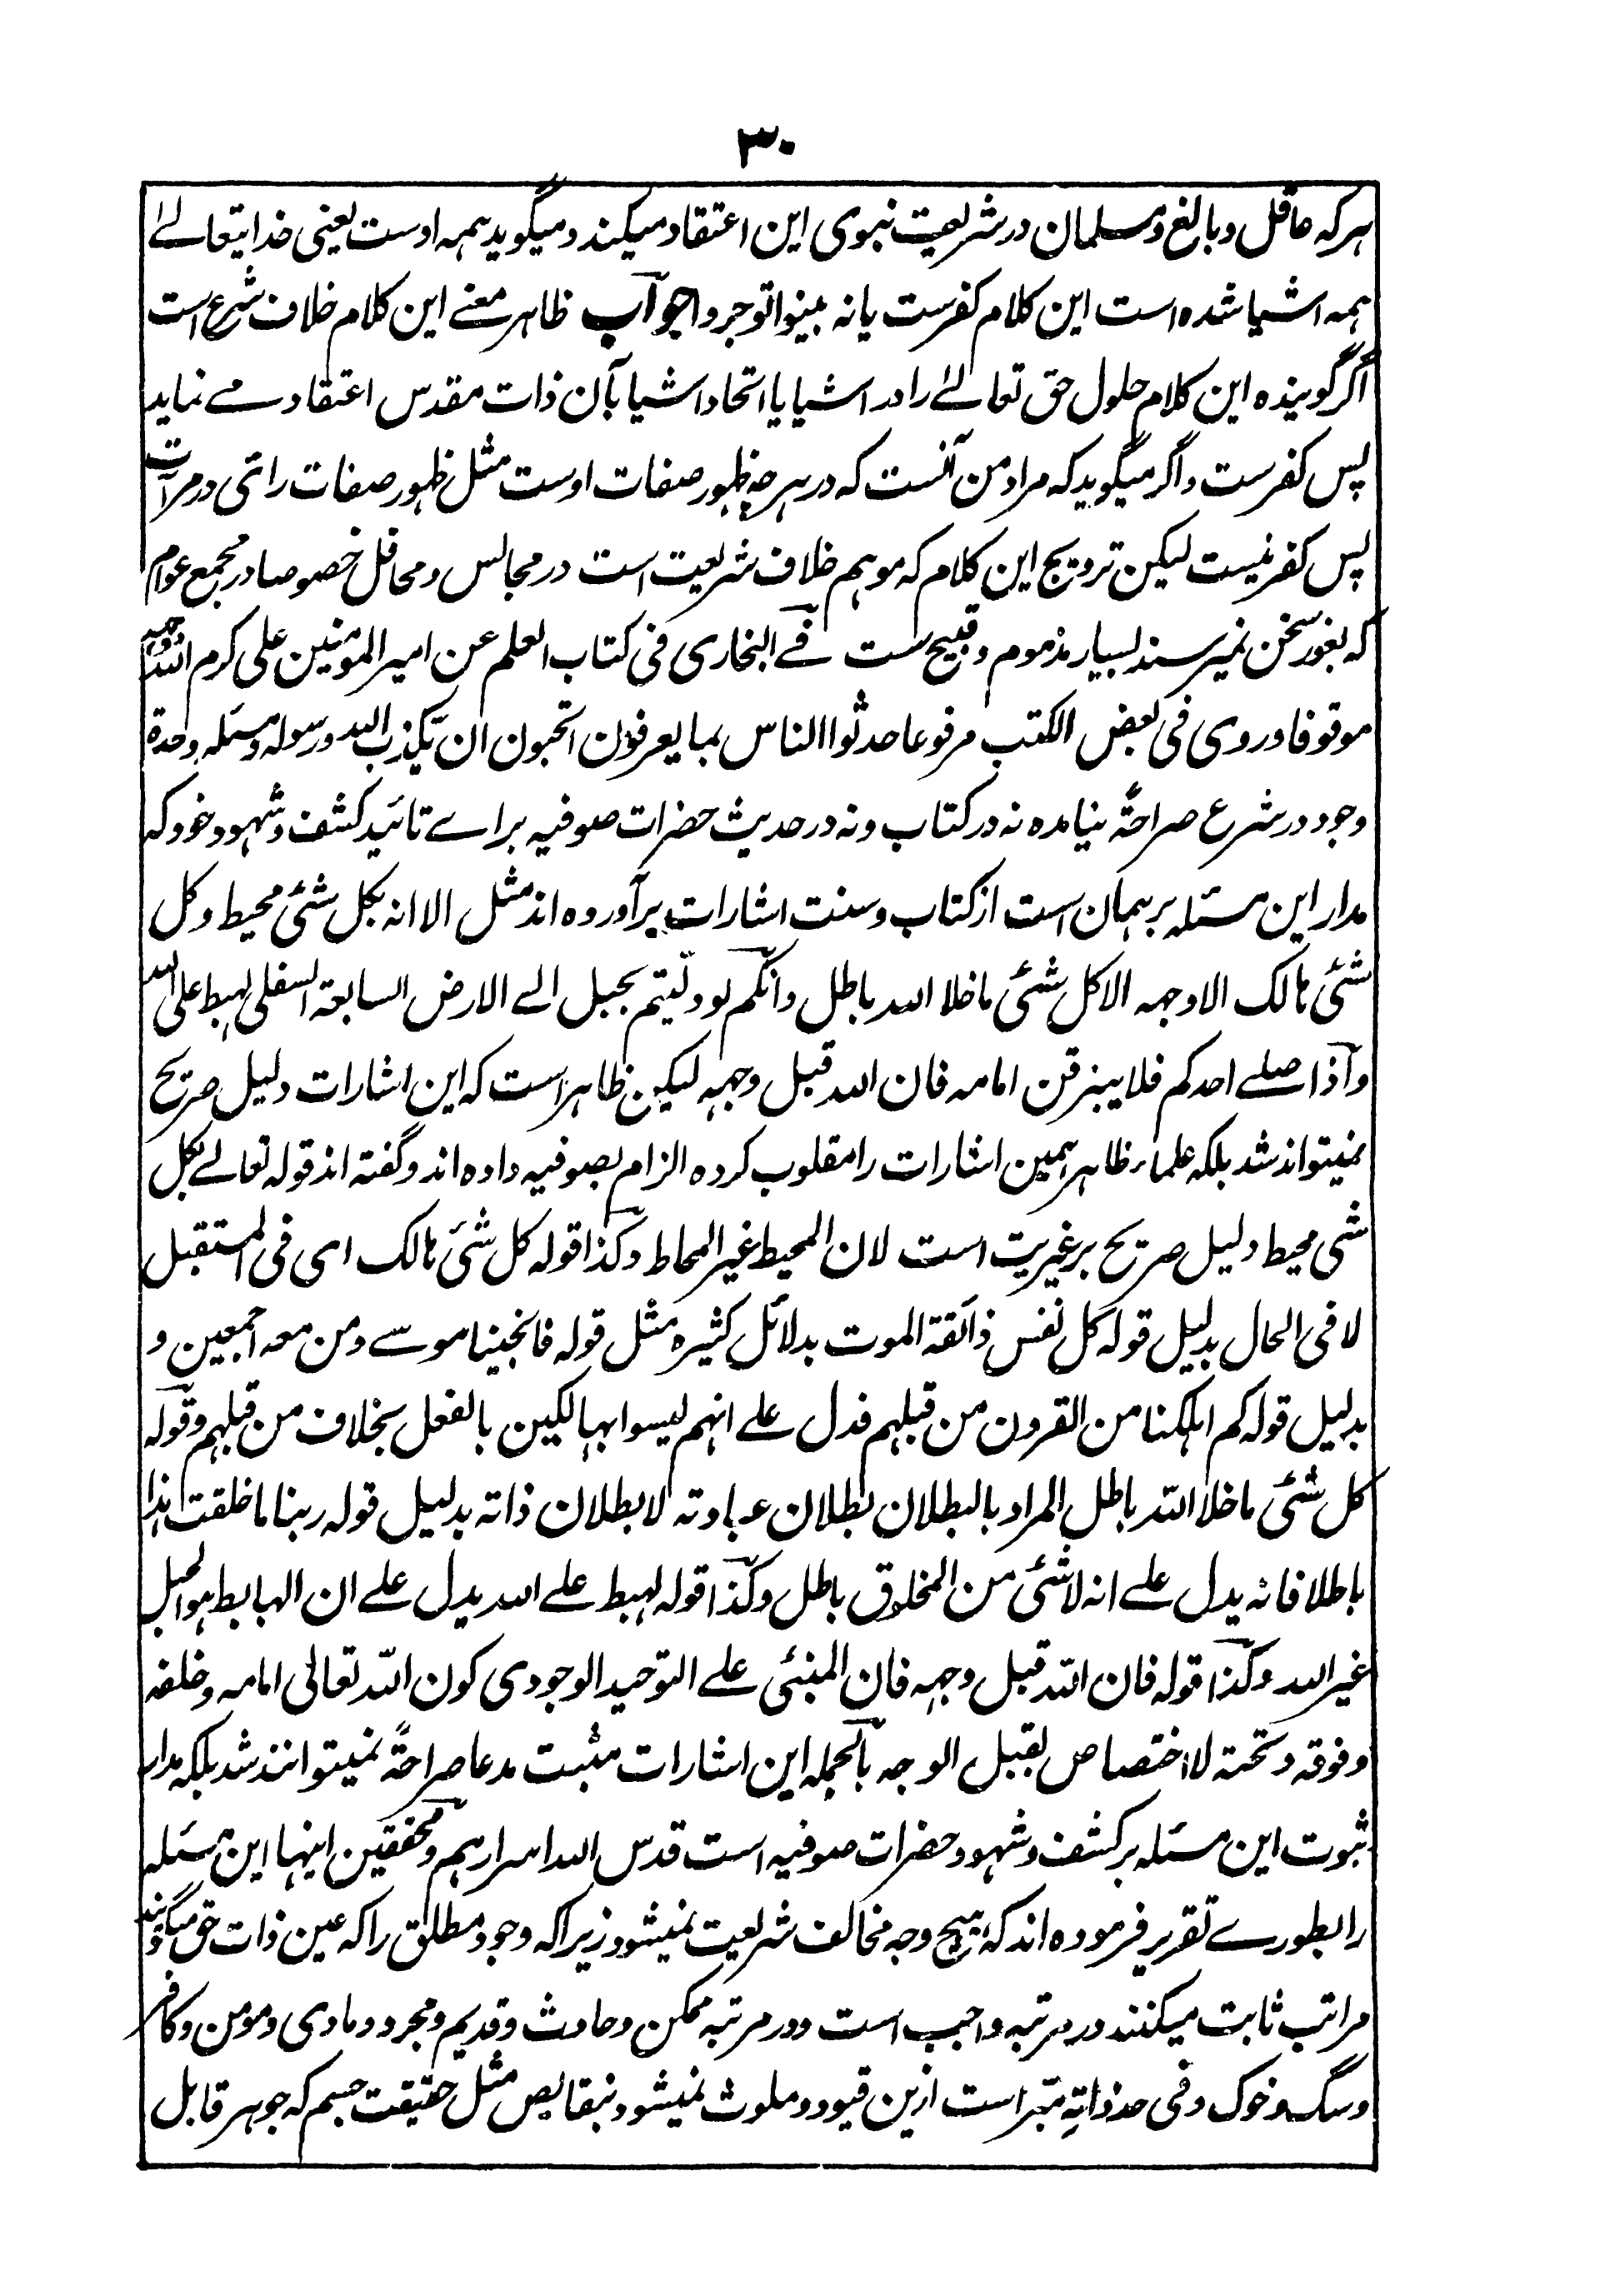 ۳۰
هرکه عاقل و بالغ و مسلمان در شریعت نبوی این اعتقاد میکند و میگوید همه اوست یعنی خدایتعالے
همه اشیا شده است این کلام کفرست یا نه بینوا توجروا جواب ظاهر معنے این کلام خلاف شرع است
اگر گوینده این کلام حلول حق تعالےٰ را در اشیا یا اتحاد اشیا بآن ذات مقدس اعتقاد مے نماید
پس کفرست و اگر میگوید که مراد من آنست که در هرچه ظهور صفات اوست مثل ظهور صفات رائی در مرآت
پس کفر نیست لیکن ترویج این کلام که موهم خلاف شریعت است در مجالس و محافل خصوصا در مجمع عوام
که بغور سخن نمیرسند بسیار مذموم و قبیح ست فے البخاری فی کتاب العلم عن امیر المؤمنین علی کرم الله وجهه
موقوفا و روی فی بعض الکتب مرفوعا حدثوا الناس بما یعرفون اتحبون ان یکذب الله و رسوله و مسئله وحدة
وجود در شرع صراحةً نیامده نه در کتاب و نه در حدیث حضرات صوفیه براے تائید کشف و شهود خود که
مدار این مسئله بر همان است از کتاب و سنت اشارات برآورده اند مثل الا انه بکل شئ محیط و کل
شئ هالک الا وجهه الا کل شئ ما خلا الله باطل و انکم لو دلّیتم بحبل الے الارض السابعة السفلی لهبط علی الله
و اذا صلے احدکم فلا یبزقن امامه فان الله قبل وجهه لیکن ظاهر است که این اشارات دلیل صریح
نمیتواند شد بلکه علماء ظاهر همین اشارات را مقلوب کرده الزام بصوفیه داده اند و گفته اند قوله تعالے بکل
شی محیط دلیل صریح بر غیریت است لان المحیط غیر المحاط و کذا قوله کل شئ هالک ای فی المستقبل
لا فی الحال بدلیل قوله کل نفس ذائقة الموت بدلائل کثیره مثل قوله فانجینا موسے و من معه اجمعین و
بدلیل قوله کم اهلکنا من القرون من قبلهم فدل علے انهم لیسوا بهالکین بالفعل بخلاف من قبلهم و قوله
کل شئ ما خلا الله باطل المراد بالبطلان بطلان عبادته لا بطلان ذاته بدلیل قوله ربنا ما خلقت هذا
باطلا فانه یدل علے انه لا شئ من المخلوق باطل و کذا قوله لهبط علے الله یدل علے ان الهابط هو الحبل
غیر الله و کذا قوله فان الله قبل وجهه فان المبنی علے التوحید الوجودی کون الله تعالی امامه و خلفه
و فوقه و تحته لا اختصاص لقبل الوجه بالجمله این اشارات مثبت مدعا صراحةً نمیتوانند شد بلکه مدار
ثبوت این مسئله بر کشف و شهود حضرات صوفیه است قدس الله اسرارهم و محققین اینها این مسئله
را بطورے تقریر فرموده اند که بهیچ وجه مخالف شریعت نمیشود زیرا که وجود مطلق را که عین ذات حق میگویند
مراتب ثابت میکنند در مرتبه واجب است و در مرتبه ممکن و حادث و قدیم و مجرد و مادی و مومن و کافر
و سگ و خوک و فی حد ذاته مبّرا است ازین قیود و ملوث نمیشود بنقایص مثل حقیقت جسم که جوهر قابل